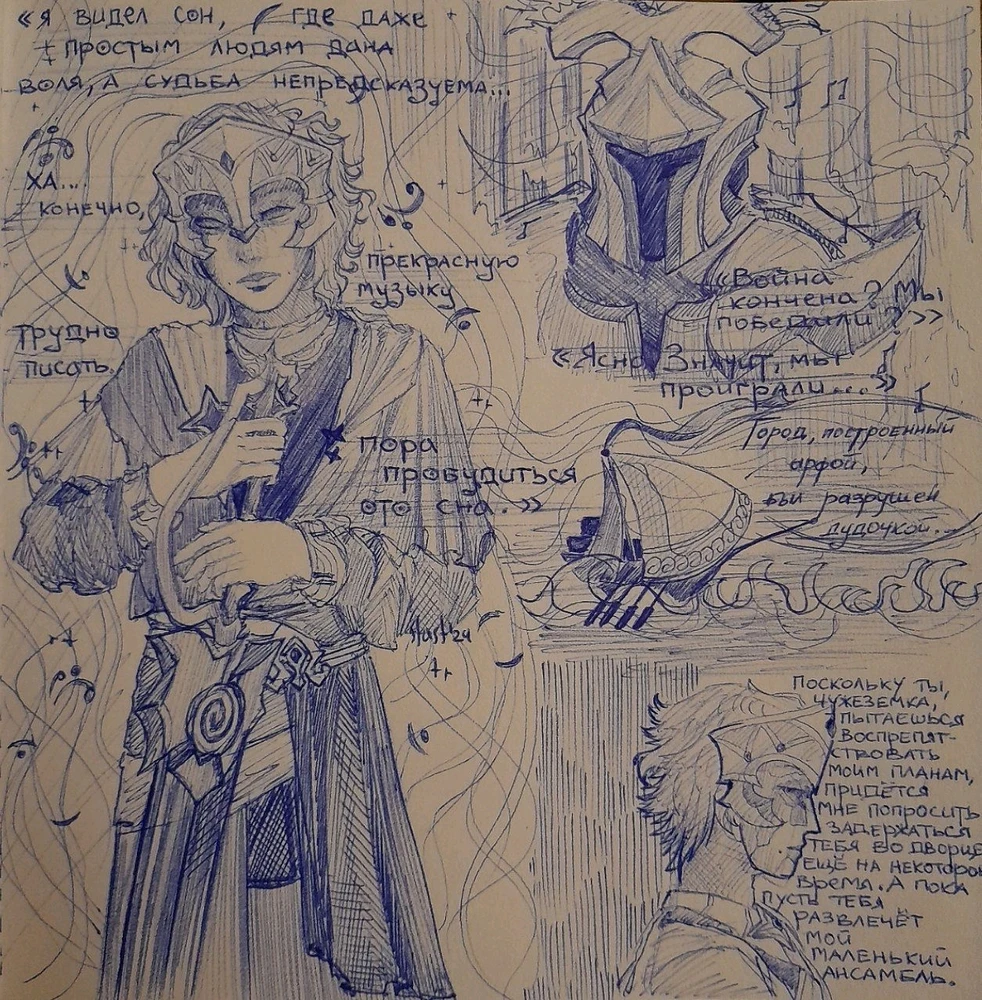 «Я ВИДЕЛ СОН, ГДЕ ДАЖЕ
ПРОСТЫМ ЛЮДЯМ ДАНА
ВОЛЯ, А СУДЬБА НЕПРЕДСКАЗУЕМА...
ХА...
КОНЕЧНО,
ПРЕКРАСНУЮ
МУЗЫКУ
ТРУДНО
ПИСАТЬ.
ПОРА
ПРОБУДИТЬСЯ
ОТО СНА.»
«Война
кончена? Мы
победили?»
«Ясно. Значит, мы
проиграли...»
Город, построенный
арфой,
был разрушен
дудочкой...
stast'24
ПОСКОЛЬКУ ТЫ,
ЧУЖЕЗЕМКА,
ПЫТАЕШЬСЯ
ВОСПРЕПЯТ-
СТВОВАТЬ
МОИМ ПЛАНАМ,
ПРИДЁТСЯ
МНЕ ПОПРОСИТЬ
ЗАДЕРЖАТЬСЯ
ТЕБЯ ВО ДВОРЦЕ
ЕЩЁ НА НЕКОТОРОЕ
ВРЕМЯ. А ПОКА
ПУСТЬ ТЕБЯ
РАЗВЛЕЧЁТ
МОЙ
МАЛЕНЬКИЙ
АНСАМБЛЬ.